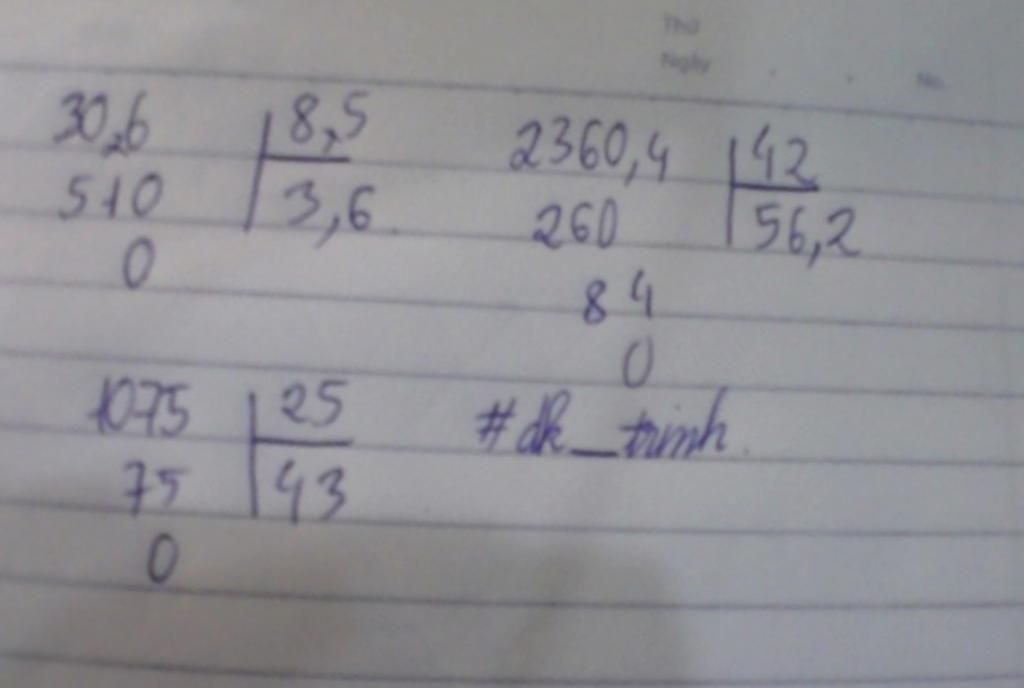 Thứ
Ngày
No.
30,6 8,5
510 3,6
0
2360,4 42
260 56,2
84
0
1075 25
75 43
0
#dk_trinh.